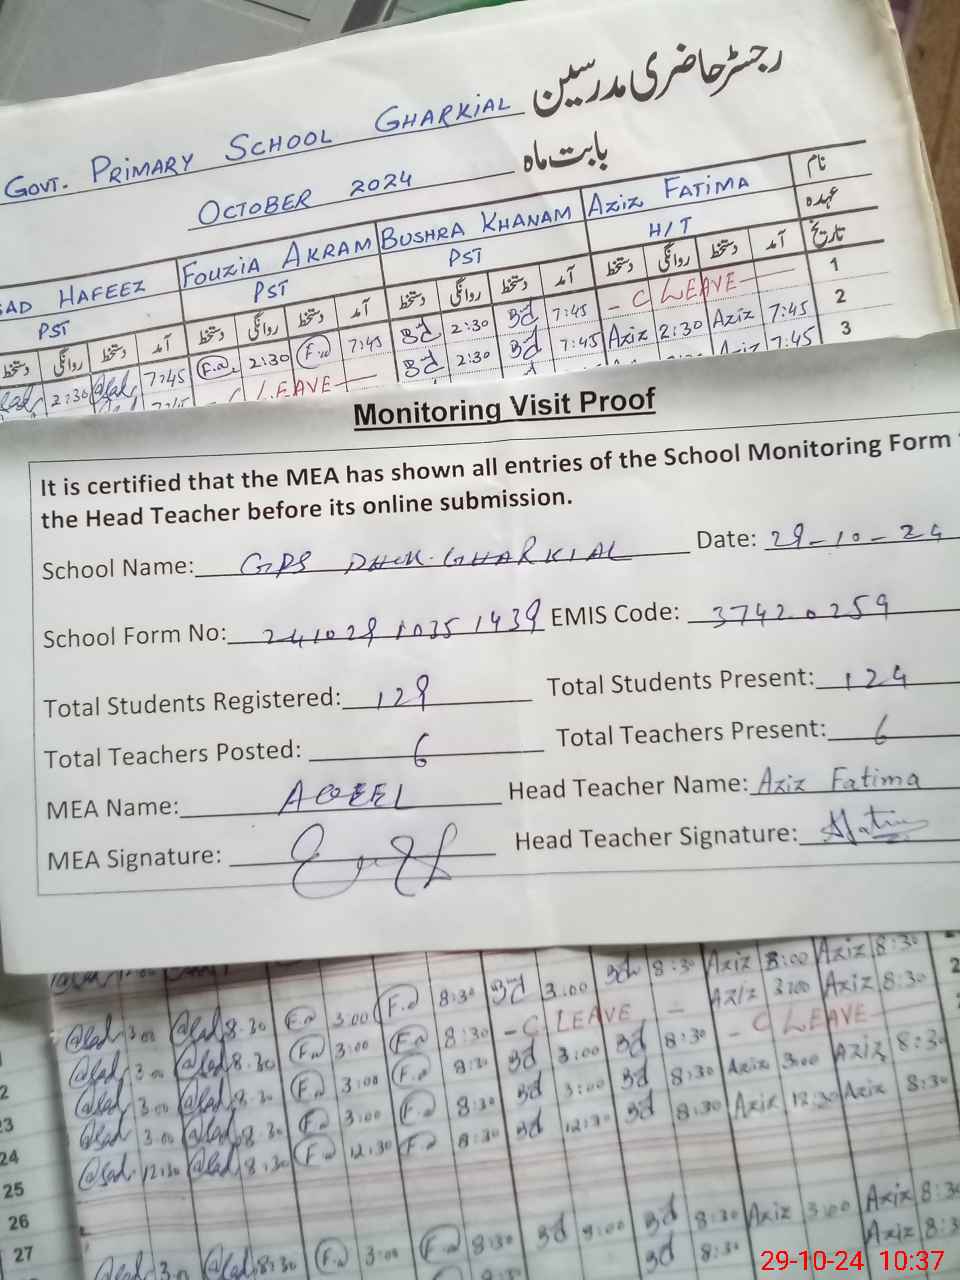 رجسٹر حاضری مدرسین
GOVT. PRIMARY SCHOOL GHARKIAL
بابت ماہ OCTOBER 2024
نام AZIZ FATIMA BUSHRA KHANAM FOUZIA AKRAM HAFEEZ
عہدہ H/T PST PST PST
تاریخ آمد دستخط روانگی دستخط آمد دستخط روانگی دستخط آمد دستخط روانگی دستخط آمد دستخط روانگی دستخط
1 - C LEAVE - 7:45 Bd 2:30 Bd 7:45 F.a 2:30 F.a 7:45 2:30
2 7:45 Aziz 2:30 Aziz 7:45 Bd 2:30 Bd LEAVE
3 7:45
Monitoring Visit Proof
It is certified that the MEA has shown all entries of the School Monitoring Form
the Head Teacher before its online submission.
School Name: GPS DHOK GHARKIAL Date: 29-10-24
School Form No: 241029 1035 1439 EMIS Code: 37420259
Total Students Registered: 129 Total Students Present: 124
Total Teachers Posted: 6 Total Teachers Present: 6
MEA Name: AQEEL Head Teacher Name: Aziz Fatima
MEA Signature: Head Teacher Signature: AFatima
3:00 8:30 F.a 3:00 F.a 8:30 Bd 3:00 Bd 8:30 Aziz 3:00 Aziz 8:30
3:00 8:30 F.a 3:00 F.a 8:30 - C LEAVE - Aziz 3:00 Aziz 8:30
3:00 8:30 F.a 3:00 F.a 8:30 Bd 3:00 Bd 8:30 - C LEAVE
23 3:00 8:30 F.a 3:00 F.a 8:30 Bd 3:00 Bd 8:30 Aziz 3:00 Aziz 8:30
24 12:30 8:30 F.a 12:30 F.a 8:30 Bd 12:30 Bd 8:30 Aziz 12:30 Aziz 8:30
25
26
27 3:00 8:30 F.a 3:00 F.a 8:30 Bd 3:00 Bd 8:30 Aziz 3:00 Aziz 8:30
8:30 Bd 8:30 Aziz 8:3
29-10-24 10:37